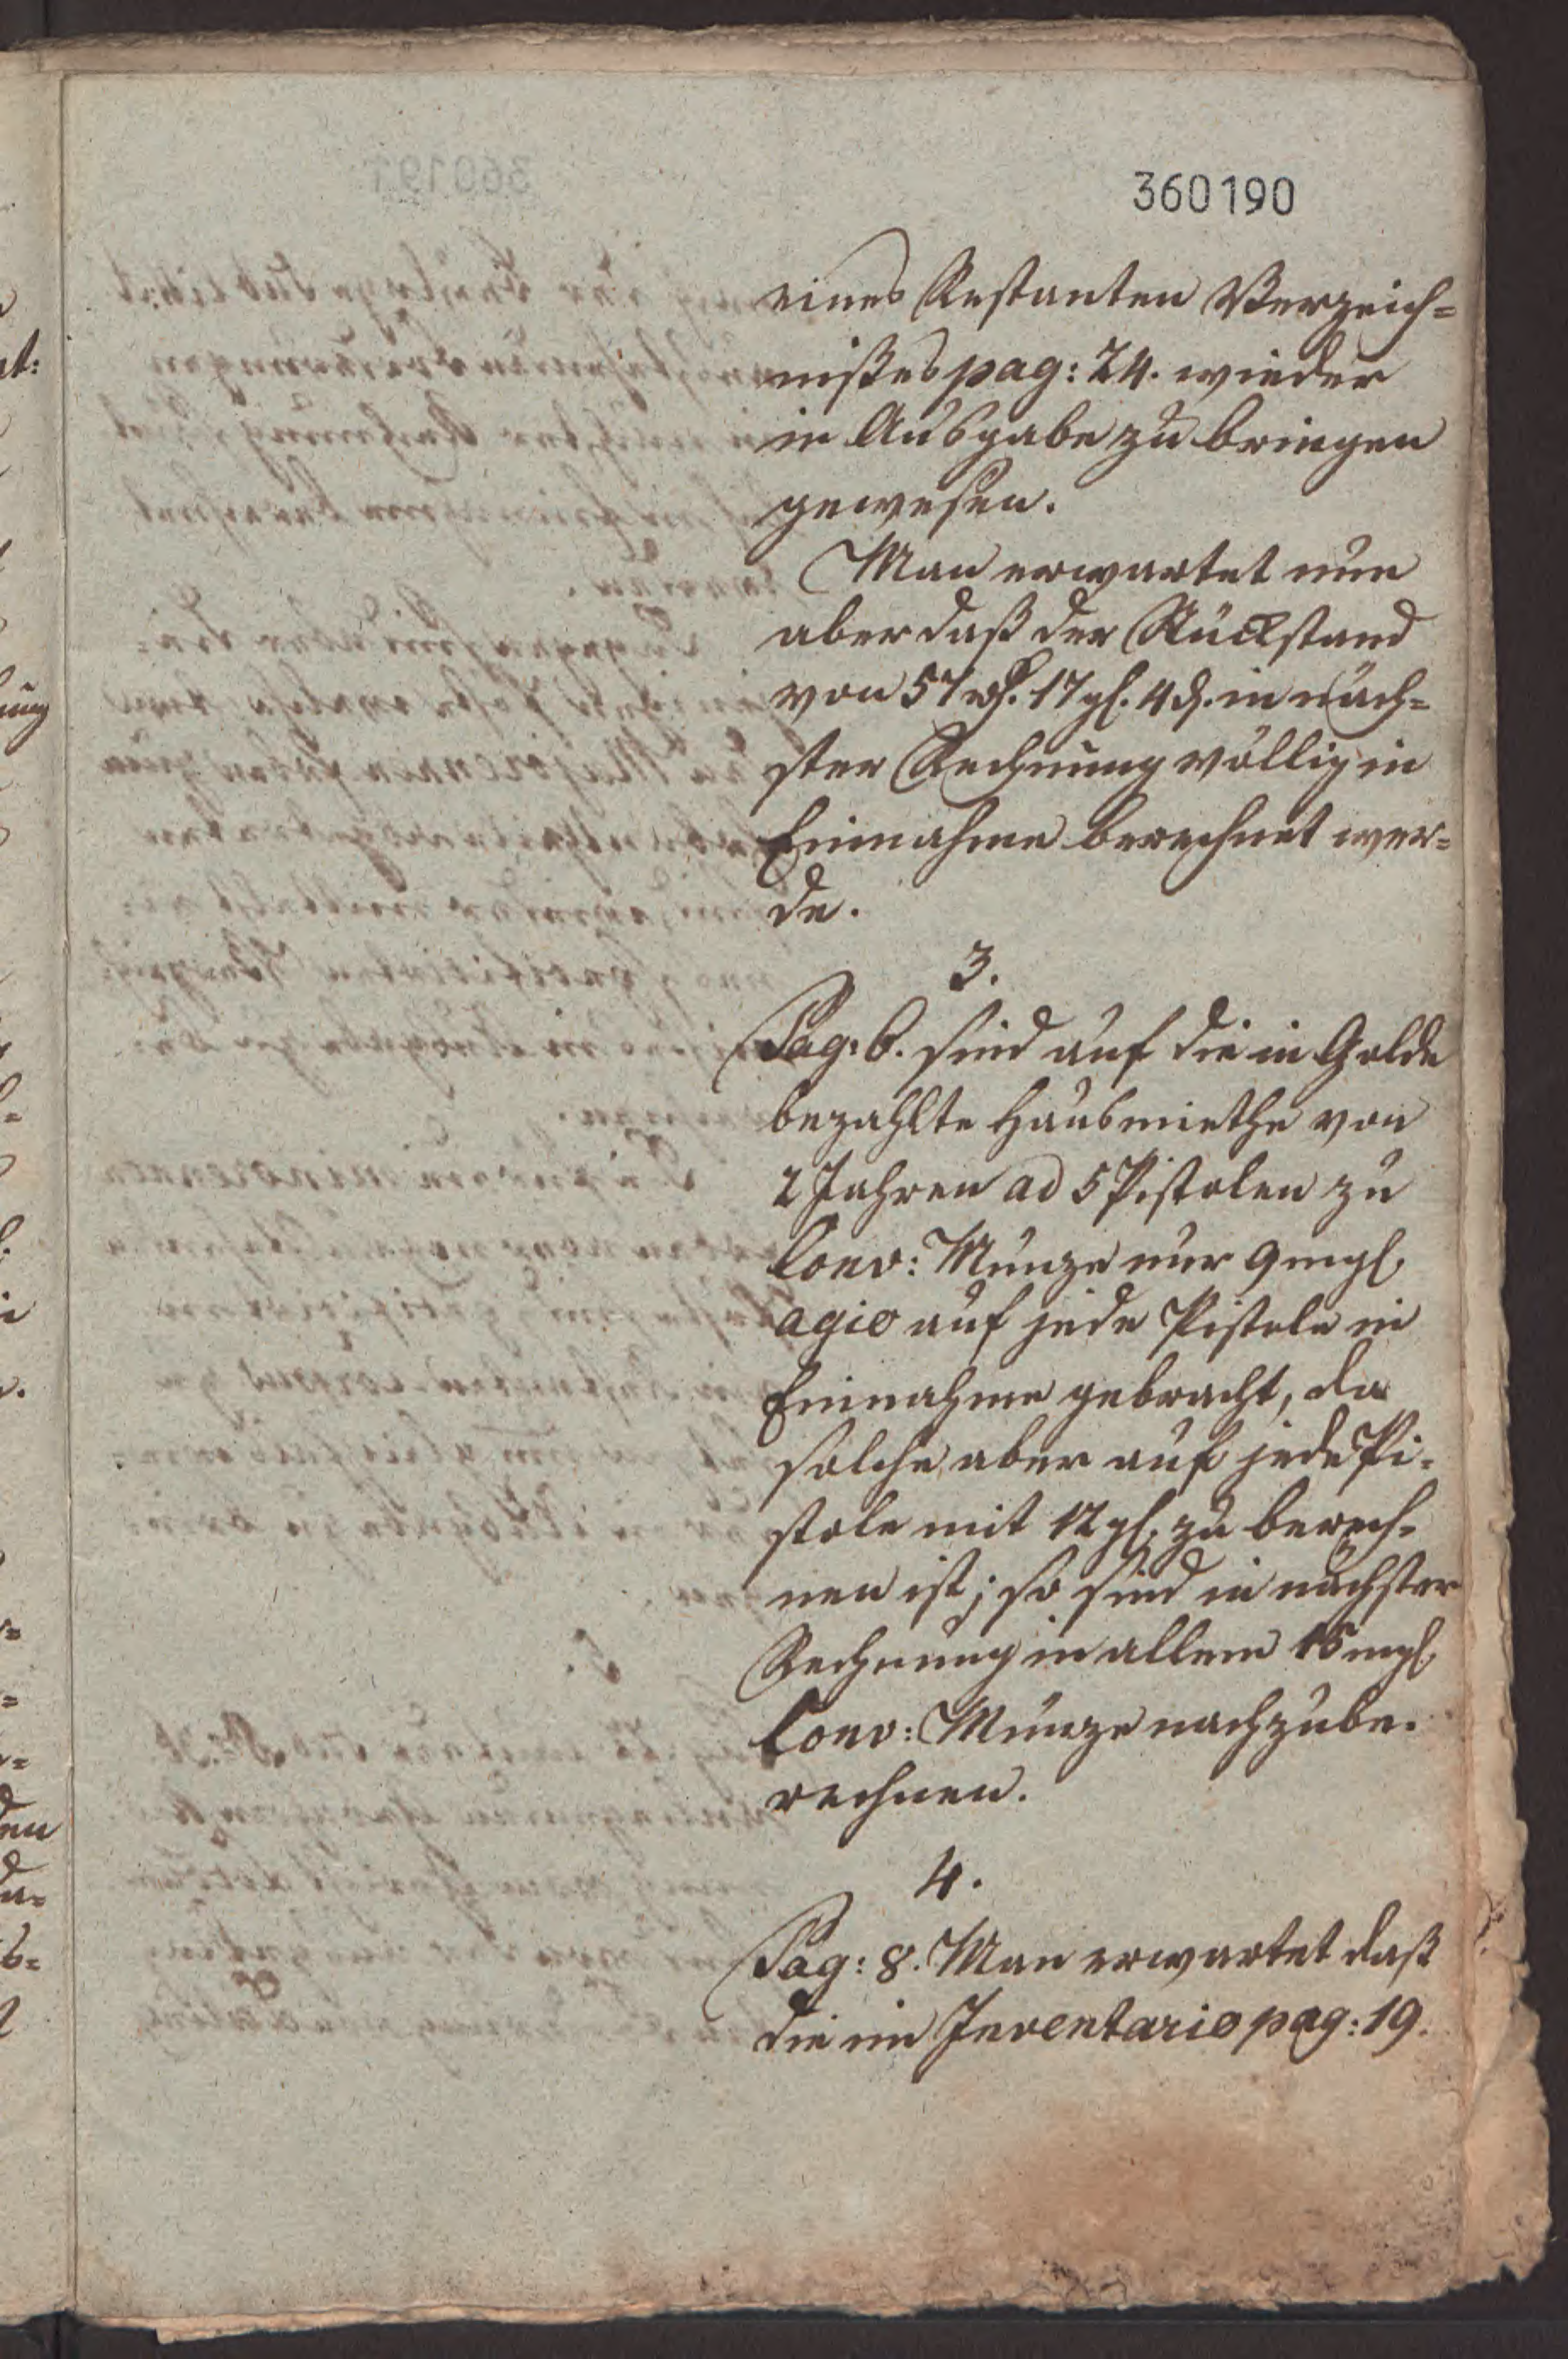 360190
eines Restanten Verzeich=
nißes pag: 24. wieder
in Ausgabe zu bringen
gewesen.
Man erwartet nun
aber daß der Rückstand
von 57 rth. 17 gl. 4 d. in näch=
ster Rechnung völlig in
Einnahme berechnet wer=
de.
3.
Pag: 6. sind auf die in Golde
bezahlte Hausmiethe von
2 Jahren ad 5 Pistolen zu
Conv: Münze nur 9 mgl.
agio auf jede Pistole in
Einnahme gebracht, da
solche aber auf jede Pi=
stole mit 12 gl. zu berech=
nen ist; so sind in nächster
Rechnung in allem 15 mgl.
Conv: Münze nachzube=
rechnen.
4.
Pag: 8. Man erwartet daß
die im Inventario pag: 19.